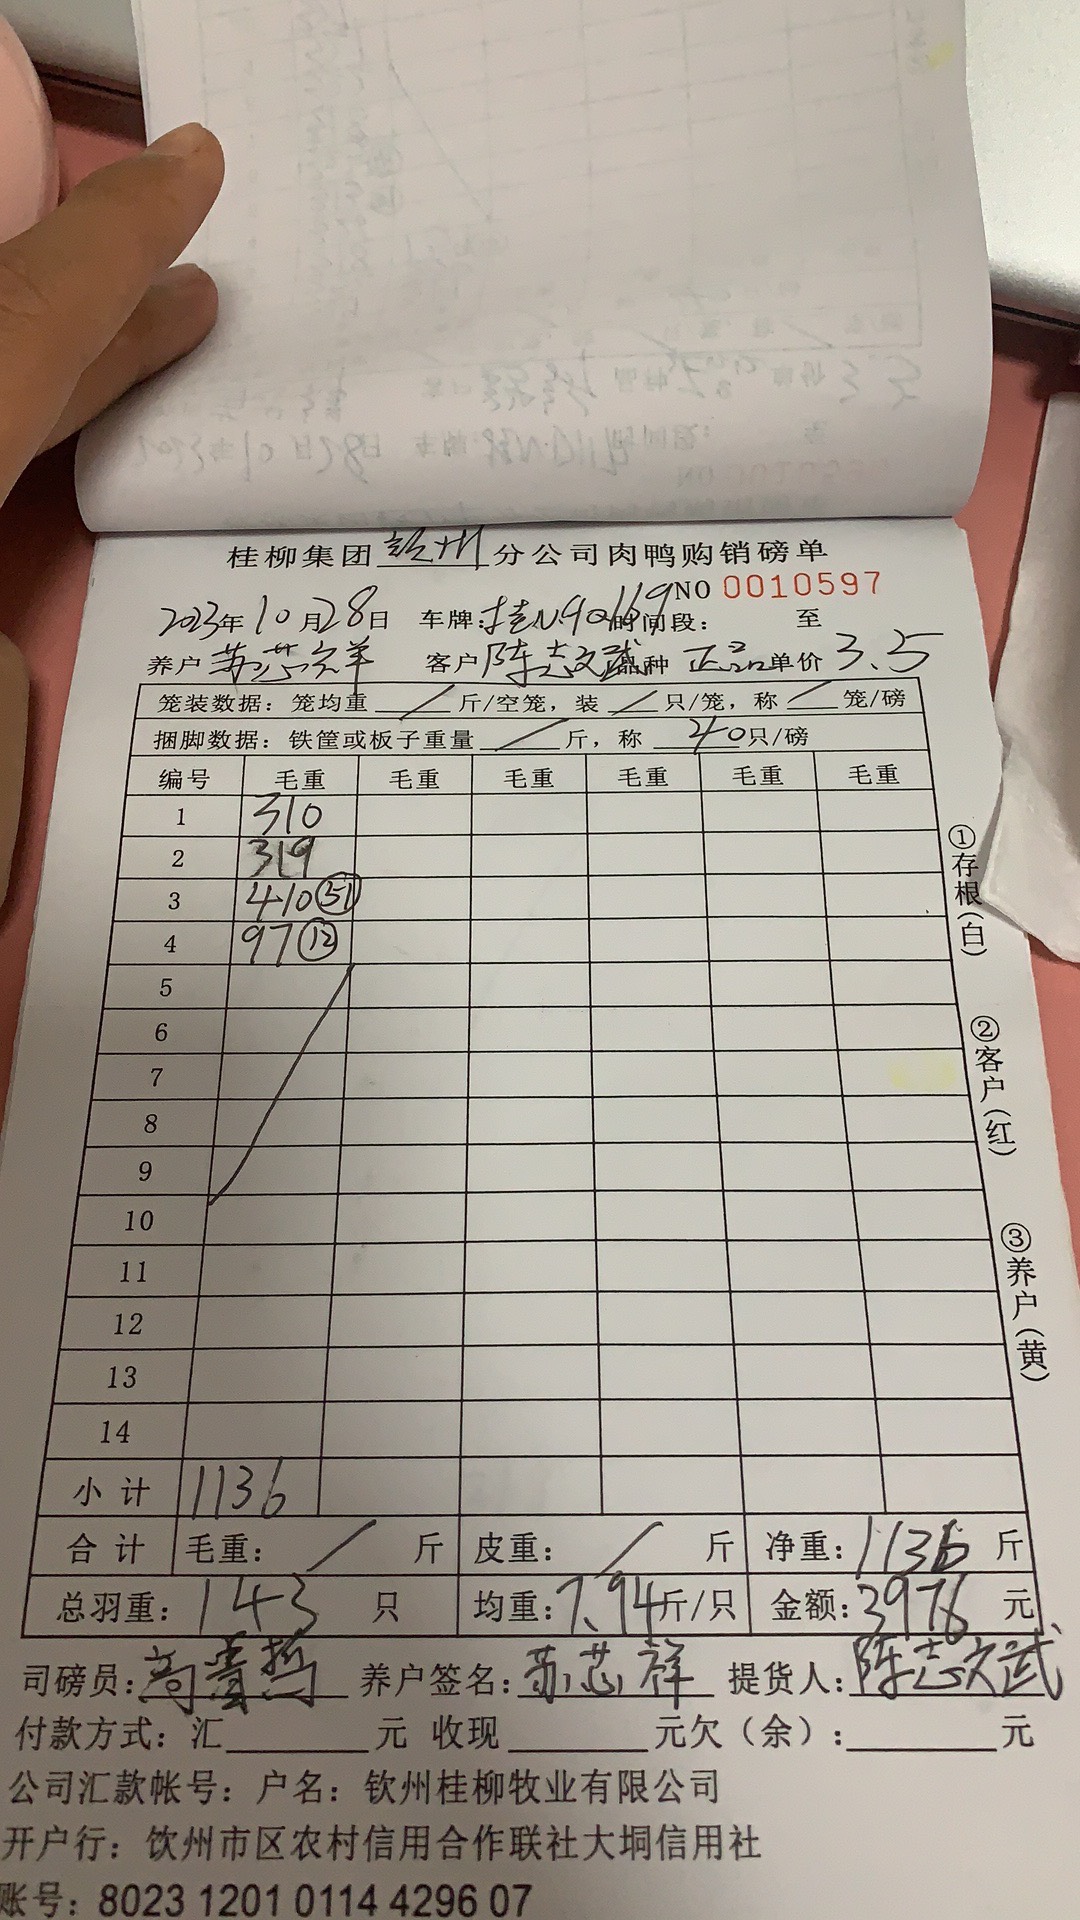 桂柳集团钦州分公司肉鸭购销磅单
NO 0010597
2023年10月28日 车牌:桂N9Q169时间段: 至
养户苏芯祥 客户陈志文武品种 正品单价3.5
笼装数据: 笼均重 / 斤/空笼, 装 / 只/笼, 称 / 笼/磅
捆脚数据: 铁筐或板子重量 / 斤, 称 40只/磅
编号 毛重 毛重 毛重 毛重 毛重 毛重
1 310
2 319
3 410 51
4 97 12
5
6
7
8
9
10
11
12
13
14
小计 1136
合计 毛重: / 斤 皮重: / 斤 净重: 1136 斤
总羽重: 143 只 均重: 7.94斤/只 金额: 3976 元
司磅员: 养户签名: 苏芯祥 提货人: 陈志文武
付款方式: 汇 元 收现 元欠(余): 元
公司汇款帐号: 户名: 钦州桂柳牧业有限公司
开户行: 饮州市区农村信用合作联社大垌信用社
账号: 8023 1201 0114 4296 07
①存根(白)
②客户(红)
③养户(黄)